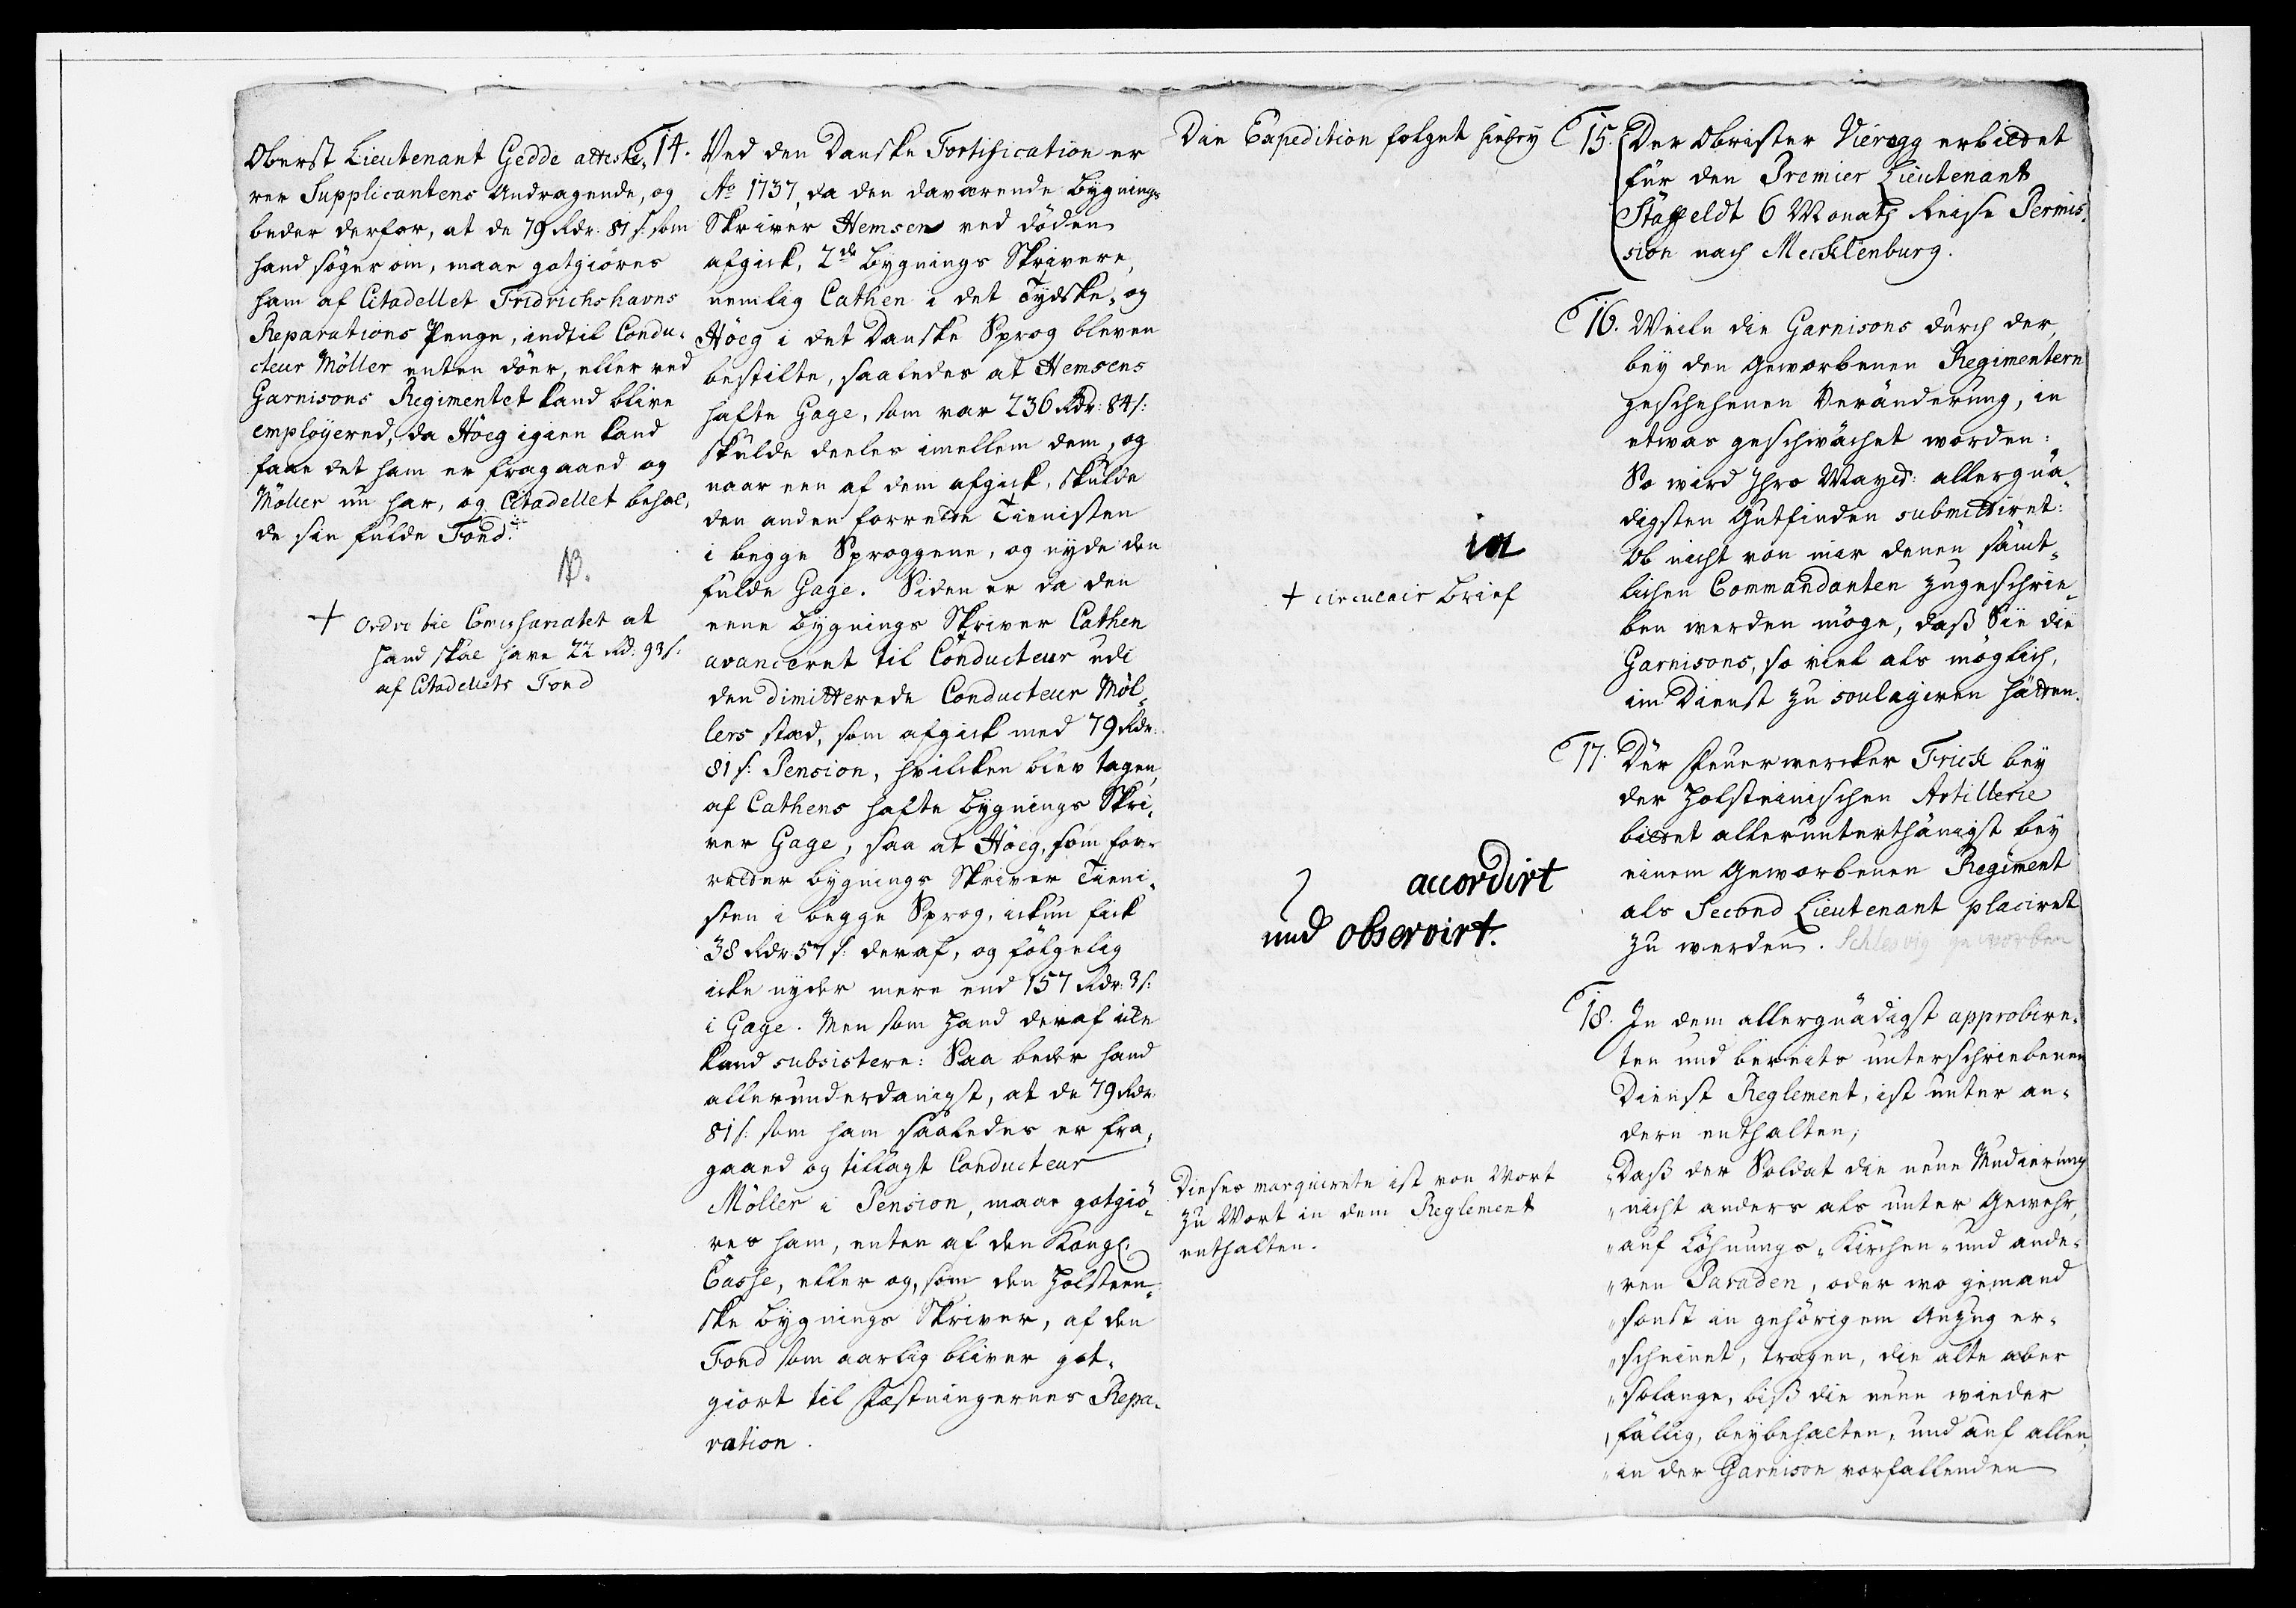 Oberst Lieutenant Gedde atteste-
rer Supplicantens Andragende, og
beder derfor, at de 79 Rdr: 81 s: som
hand söger om, maae gotgiöres
ham af Citadellet Fridrichshavns
Reparations Penge, indtil Condu-
cteur Möller enten döer, eller ved
Garnisons Regimentet kand blive
employered, da Höeg igien kand
faae det ham er fragaaed og
Möller nu har, og Citadellet behol-
de sin fulde Fond.
NB.
+ Ordre til Comissariatet at
hand skal have 22 Rd: 93 s:
af Citadellets Fond
14. Ved den Danske Fortification er
Ao 1737, da den daværende Bygnings
Skriver Hemsen ved döden
afgick, 2de Bygnings Skrivere,
nemlig Cathen i det Tydske- og
Höeg i det Danske Sprog bleven
bestilte, saaledes at Hemsens
hafte Gage, som var 236 Rdr: 84 s:
skulde deeles imellem dem, og
naar een af dem afgick, skulde
den anden forrette Tienisten
i begge Sproggene, og nyde den
fulde Gage. Siden er da den
eene Bygnings Skriver Cathen
avanceret til Conducteur udi
den dimitterede Conducteur Möl-
lers stæd, som afgick med 79 Rdr:
81 s: Pension, hvilcken blev tagen
af Cathens hafte Bygnings Skri-
ver Gage, saa at Höeg, som for-
retter Bygnings Skriver Tieni-
sten i begge Sprog, ickun fick
38 Rdr: 57 s: deraf, og fölgelig
icke nyder mere end 157 Rdr: 3 s:
i Gage. Men som hand deraf icke
kand subsistere: Saa beder hand
allerunderdanigst, at de 79 Rdr:
81 s: som ham saaledes er fra-
gaaed og tillagt Conducteur
Möller i Pension, maae gotgiö-
res ham, enten af den Kongl.
Casse, eller og, som den Holsteen-
ske Bygnings Skriver, af den
Fond som aarlig bliver got-
giort til Fæstningernes Repa-
ration.
Die Expedition folget hiebey
in
+ circulair Brief
accordirt
und observirt.
Dieses marquirete ist von Wort
zu Wort in dem Reglement
enthalten.
15. Der Obrister Vieregg erbittet
für den Premier Lieutenant
Staffeldt 6 Monath Reise Permis-
sion nach Mecklenburg.
16. Weile die Garnisons durch der,
bey den Geworbenen Regimentern
geschehenen Veränderung, in
etwas geschwächet worden:
So wird Ihro Mayst: allergnä-
digsten Gutfinden submittiret:
Ob nicht von mir denen sämt-
lichen Commandanten zugeschrie-
ben werden möge, daß Sie die
Garnisons, so viel als möglich,
im Dienst zu soulagiren hätten.
17. Der Feuerwercker Frick bey
der Holsteinischen Artillerie
bittet allerunterthänigst bey
einem Geworbenen Regiment
als Second Lieutenant placiret
zu werden. Schlesvig geworben
18. In dem allergnädigst approbire-
ten und bereits unterschriebenen
Dienst Reglement, ist unter an-
dern enthalten;
"Daß der Soldat die neue Mudierung
"nicht anders als unter Gewehr,
"auf Löhnungs- Kirchen- und ande-
"ren Paraden, oder wo jemand
"sonst in gehörigem Anzug er-
"scheinet, tragen, die alte aber
"solange, biß die neue wieder
"fällig, beybehalten, und auf allen
"in der Garnison vorfallenden